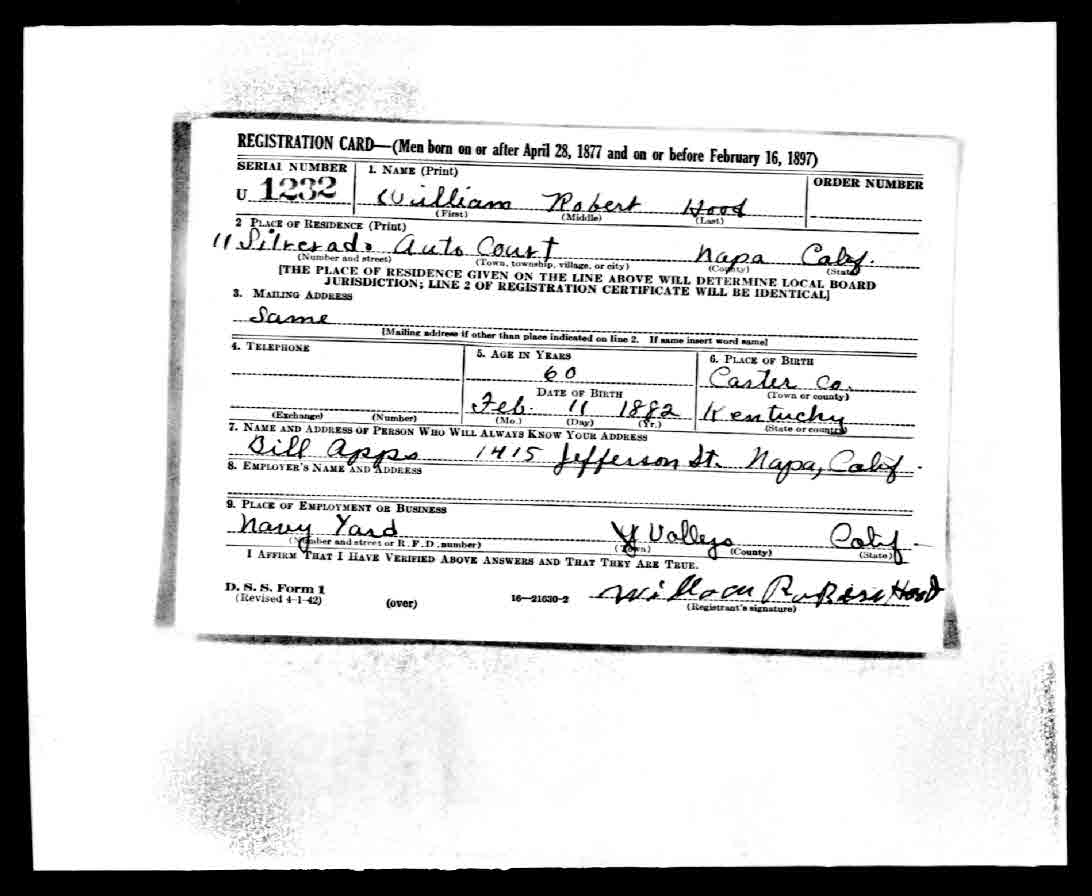 REGISTRATION CARD—(Men born on or after April 28, 1877 and on or before February 16, 1897)
SERIAL NUMBER 1. NAME (Print) ORDER NUMBER
U 1232 William Robert Hood
(First) (Middle) (Last)
2 PLACE OF RESIDENCE (Print)
11 Silverado Auto Court Napa Calif.
(Number and street) (Town, township, village, or city) (County) (State)
[THE PLACE OF RESIDENCE GIVEN ON THE LINE ABOVE WILL DETERMINE LOCAL BOARD
JURISDICTION; LINE 2 OF REGISTRATION CERTIFICATE WILL BE IDENTICAL]
3. MAILING ADDRESS
Same
[Mailing address if other than place indicated on line 2. If same insert word same]
4. TELEPHONE 5. AGE IN YEARS 6. PLACE OF BIRTH
60 Carter Co.
DATE OF BIRTH (Town or county)
Feb. 11 1882 Kentucky
(Exchange) (Number) (Mo.) (Day) (Yr.) (State or country)
7. NAME AND ADDRESS OF PERSON WHO WILL ALWAYS KNOW YOUR ADDRESS
Bill Apps 1415 Jefferson St. Napa, Calif.
8. EMPLOYER'S NAME AND ADDRESS
9. PLACE OF EMPLOYMENT OR BUSINESS
Navy Yard Vallejo Calif.
(Number and street or R. F. D. number) (Town) (County) (State)
I AFFIRM THAT I HAVE VERIFIED ABOVE ANSWERS AND THAT THEY ARE TRUE.
D. S. S. Form 1
(Revised 4-1-42) (over) 16—21630-2 William Robert Hood
(Registrant's signature)